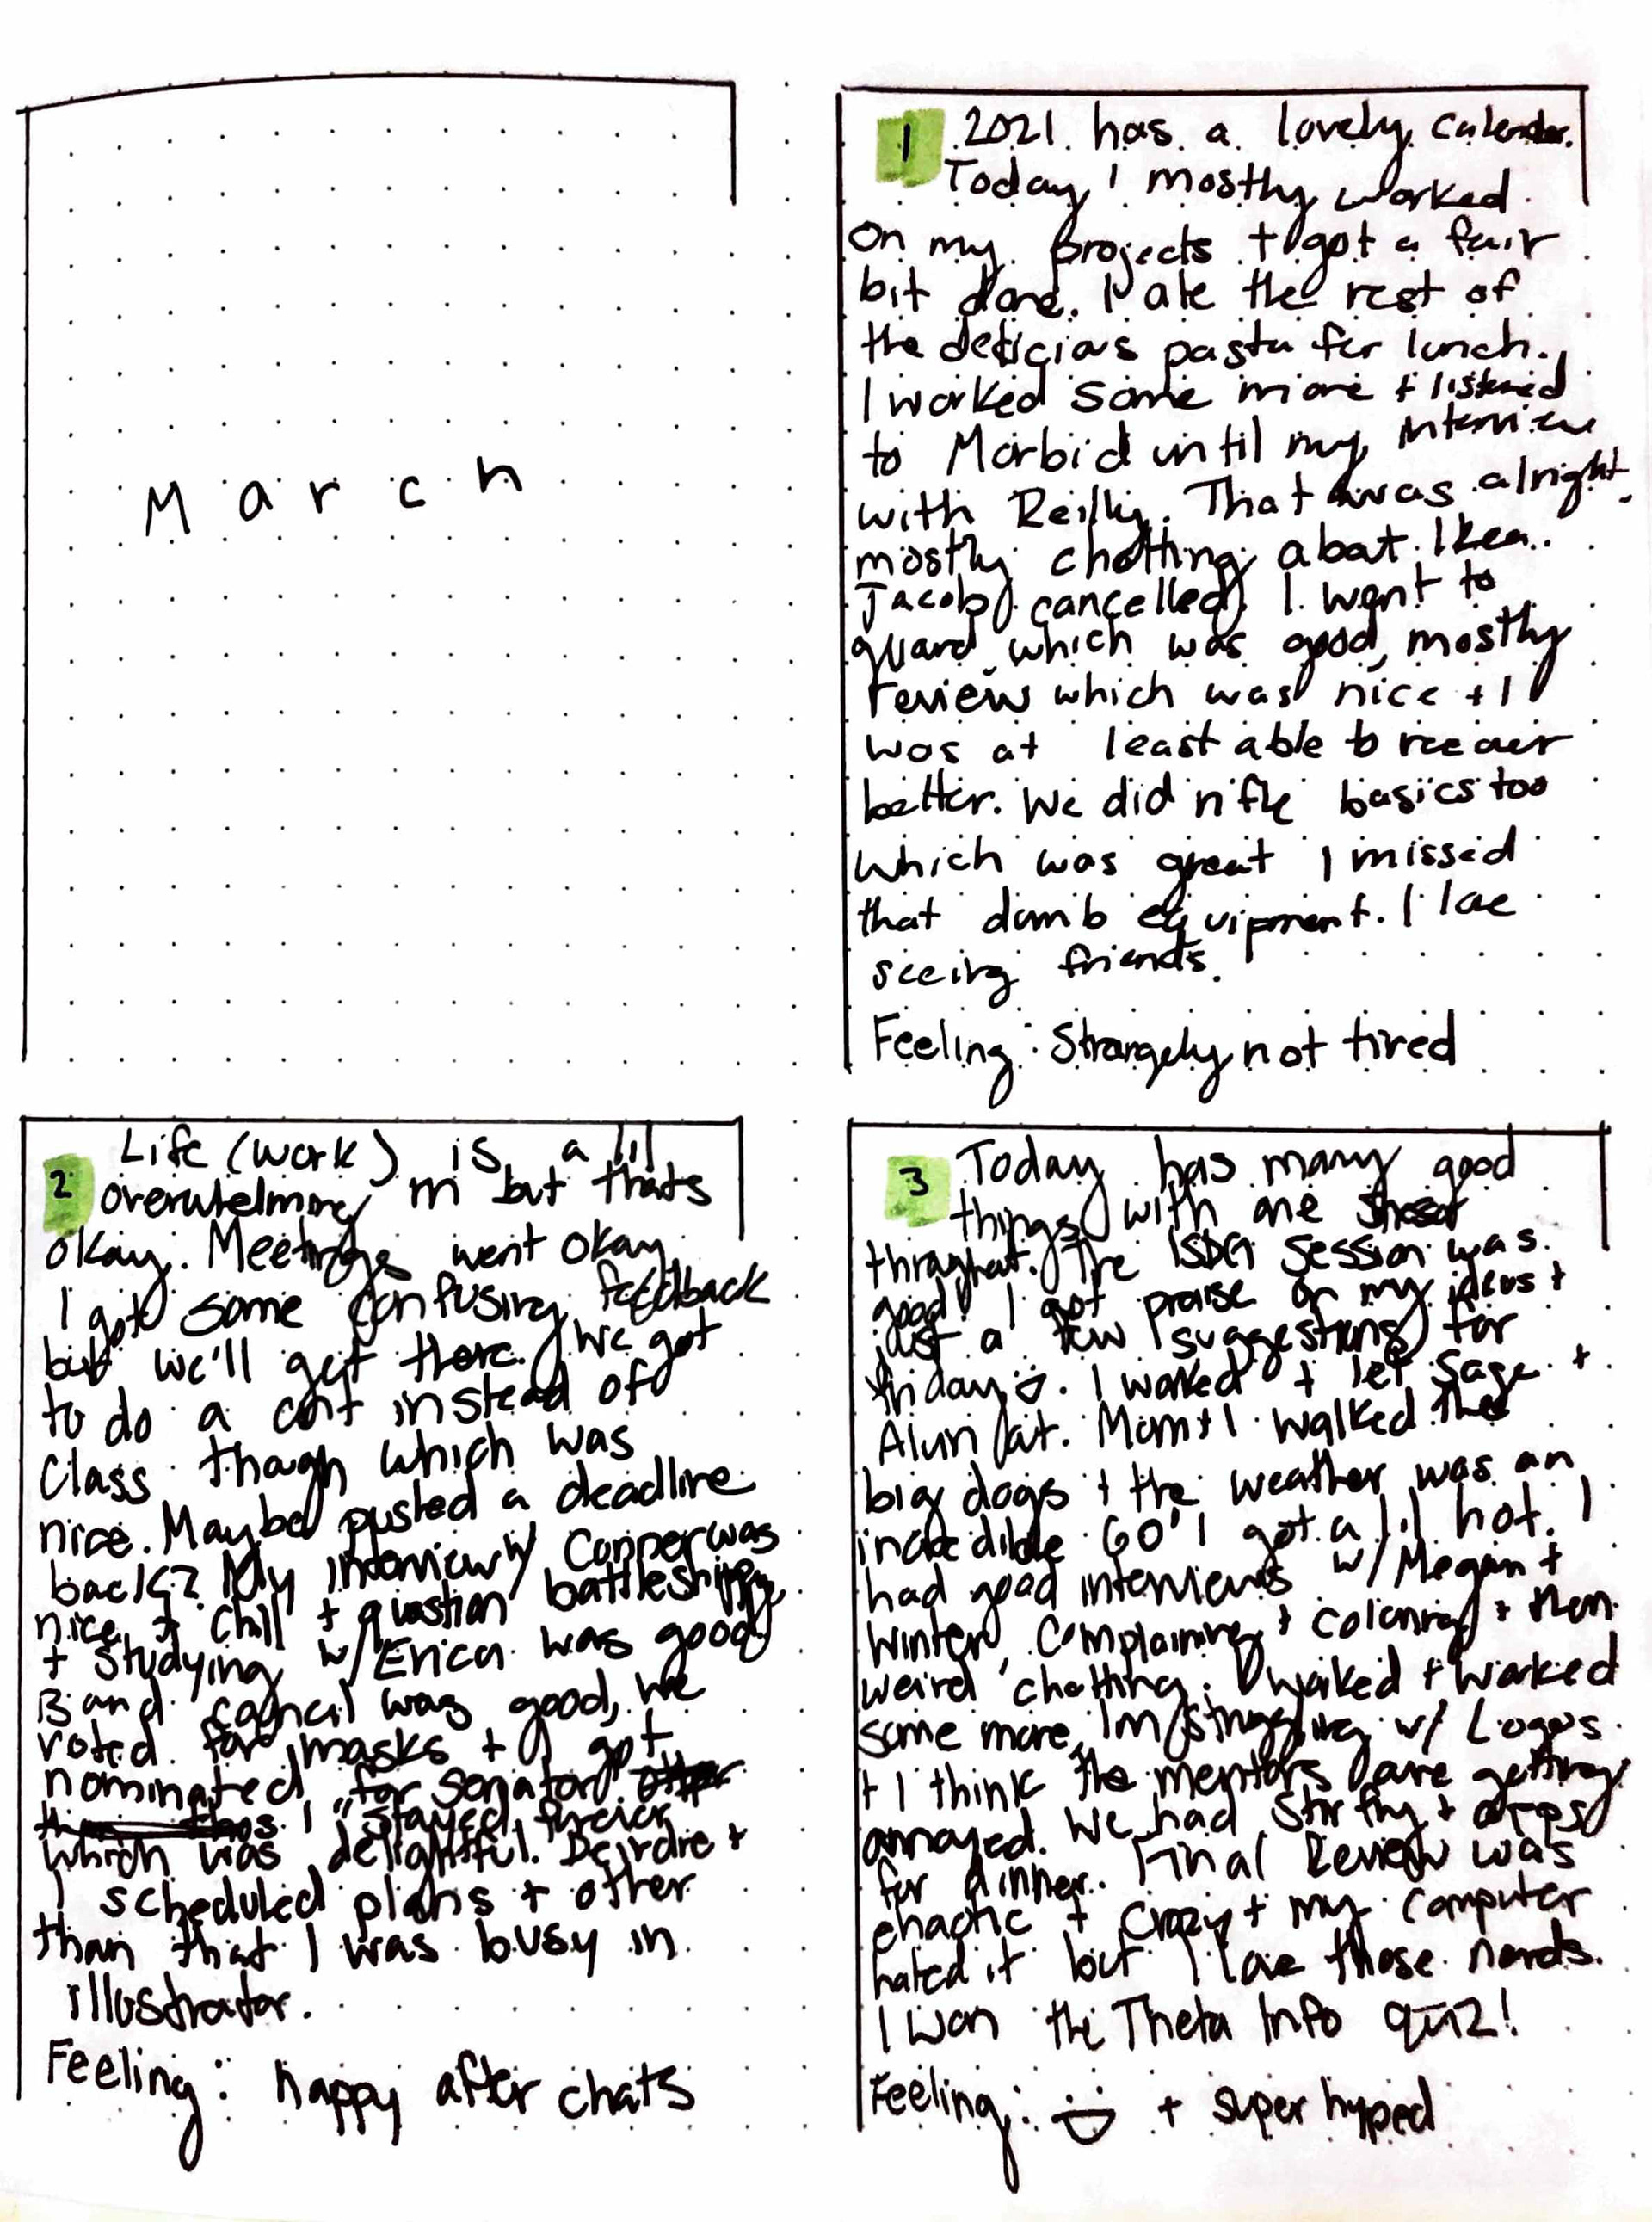 March
1 2021 has a lovely calendar.
Today I mostly worked
on my projects + got a fair
bit done. I ate the rest of
the delicious pasta for lunch.
I worked some more + listened
to Morbid until my interview
with Reilly. That was alright
mostly chatting about Ikea.
Jacob cancelled. I went to
guard which was good, mostly
review which was nice + I
was at least able to recover
better. We did rifle basics too
which was great I missed
that dumb equipment. I love
seeing friends.
Feeling: Strangely not tired
2 Life (work) is a lil
overwhelming rn but thats
okay. Meetings went okay.
I got some confusing feedback
but we'll get there. We got
to do a crit instead of
class though which was
nice. Maybe pushed a deadline
back? My interview w/ Conner was
nice + chill + question battleshipy
+ studying w/ Erica was good
Band council was good, we
voted for masks + I got
nominated for senator
I stayed
which was delightful. Deirdre +
I scheduled plans + other
than that I was busy in
illustrator.
Feeling: happy after chats
3 Today has many good
things with one
throughout. The ISDG session was
good! I got praise on my ideas +
just a few suggestions for
friday :). I worked + let Sage +
out. Mom + I walked the
big dogs + the weather was an
incredible 60° I got a lil hot. I
had good interviews w/ Megan +
Winter, complaining + coloring + then
weird chatting. I walked + worked
some more, Im struggling w/ Logos
+ I think the mentors are getting
annoyed. We had stir fry +
for dinner. Final Review was
chaotic + crazy + my computer
hated it but I love those nerds.
I won the Theta Info quiz!
Feeling: :D + super hyped